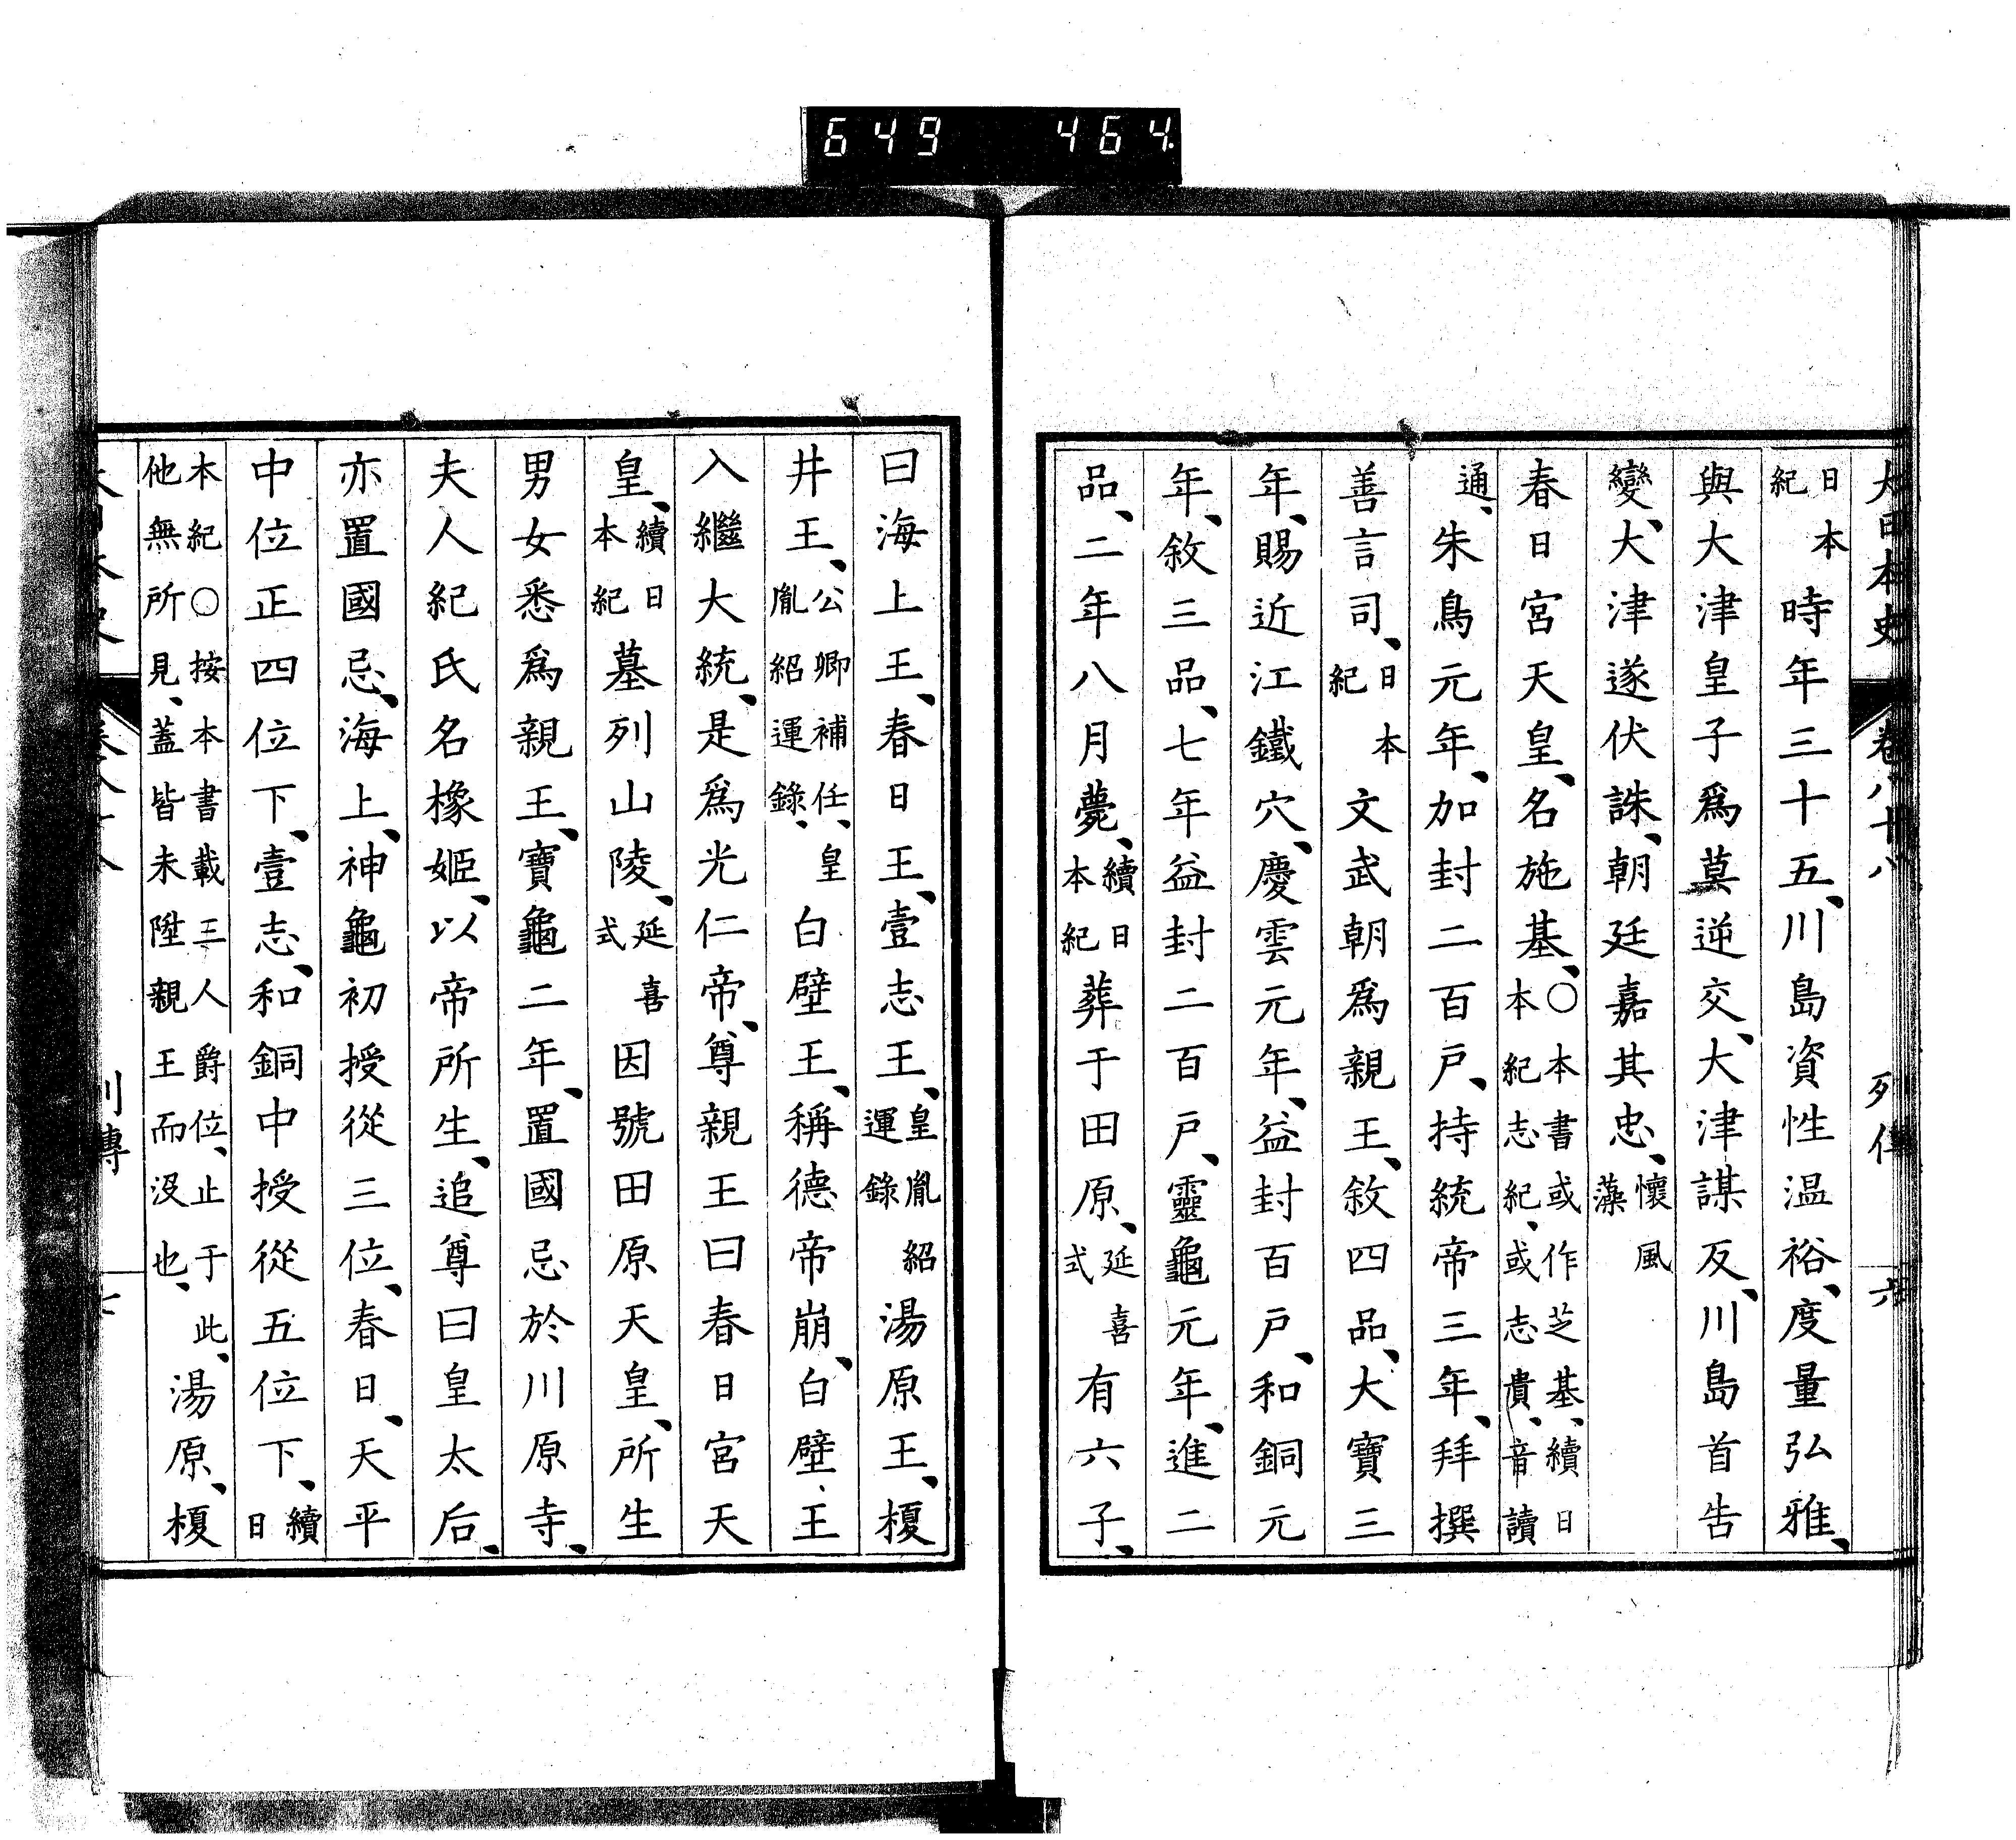 649 464
大日本史 卷八十八 列傳 六
日本紀時年三十五、川島資性温裕、度量弘雅、
與大津皇子爲莫逆交、大津謀反、川島首告
變、大津遂伏誅、朝廷嘉其忠、懷風藻
春日宮天皇、名施基、○本書或作芝基、續日本紀志紀、或志貴、音讀
通、朱鳥元年、加封二百戸、持統帝三年、拜撰
善言司、日本紀文武朝爲親王、敘四品、大寶三
年、賜近江鐵穴、慶雲元年、益封百戸、和銅元
年、敘三品、七年益封二百戸、靈龜元年、進二
品、二年八月薨、續日本紀葬于田原、延喜式有六子、
曰海上王、春日王、壹志王、皇胤紹運錄湯原王、榎
井王、公卿補任、皇胤紹運錄、白壁王、稱德帝崩、白壁王
入繼大統、是爲光仁帝、尊親王曰春日宮天
皇、續日本紀墓列山陵、延喜式因號田原天皇、所生
男女悉爲親王、寶龜二年、置國忌於川原寺、
夫人紀氏名橡姬、以帝所生、追尊曰皇太后、
亦置國忌、海上、神龜初授從三位、春日、天平
中位正四位下、壹志、和銅中授從五位下、續日
本紀○按本書載三人爵位、止于此、他無所見、蓋皆未陞親王而沒也、湯原、榎